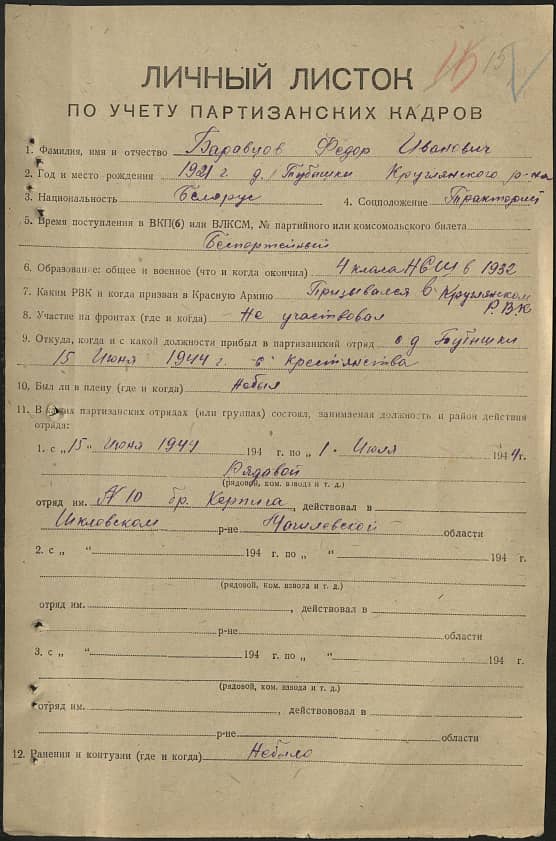 15
ЛИЧНЫЙ ЛИСТОК
ПО УЧЕТУ ПАРТИЗАНСКИХ КАДРОВ
1. Фамилия, имя и отчество Баравцов Федор Иванович
2. Год и место рождения 1921 г д. Тубышки Круглянского р-на
3. Национальность Беларус 4. Соцположение
5. Время поступления в ВКП(б) или ВЛКСМ, № партийного или комсомольского билета
Беспортейный
6. Образование: общее и военное (что и когда окончил) 4 класа НСШ в 1932
7. Каким РВК и когда призван в Красную Армию Призывался в Круглянском
РВК
8. Участие на фронтах (где и когда) Не участвовал
9. Откуда, когда и с какой должности прибыл в партизанский отряд с д Тубышки
15 Июня 1944 г. с крестянства
10. Был ли в плену (где и когда) Небыл
11. В каких партизанских отрядах (или группах) состоял, занимаемая должность и район действия
отряда:
1. с „15" Июня 1944 194 г. по „1. Июля 1944г.
Рядавой
(рядовой, ком. взвода и т. д.)
отряд им. № 10 бр. , действовал в
Шкловском р-не Магилевской области
2. с „ " 194 г. по „ " 194 г.
(рядовой, ком. взвода и т. д.)
отряд им. , действовал в
р-не области
3. с „ " 194 г. по „ " 194 г.
(рядовой, ком. взвода и т. д.)
отряд им. , действововал в
р-не области
12. Ранения и контузии (где и когда) Небыло